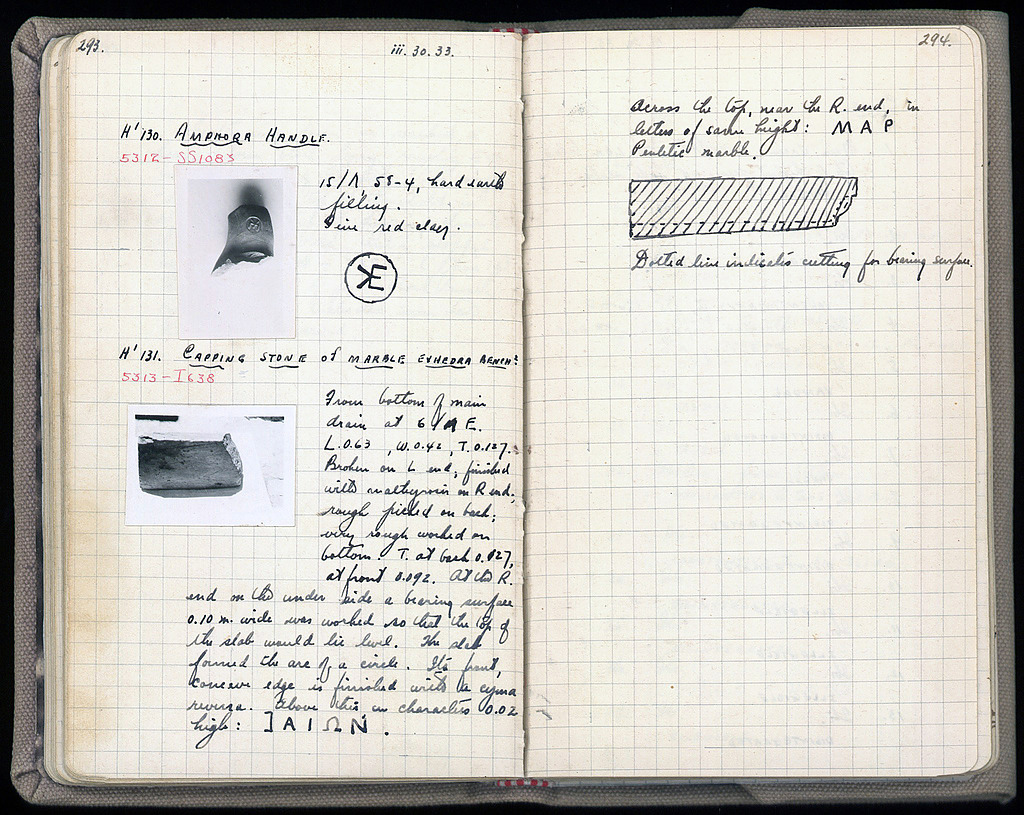 293.
iii. 30. 33.
H' 130. AMPHORA HANDLE.
5312 - SS1083
15/Λ 58-4, hard earth
filling.
Fine red clay.
KE
H' 131. CAPPING STONE of MARBLE EXHEDRA BENCH:
5313 - I 638
From bottom of main
drain at 6/ E.
L. 0.63, W. 0.42, T. 0.127.
Broken on L end; finished
with on R end;
rough picked on back;
very rough worked on
bottom. T. at back 0.127,
at front 0.092. At the R.
end on the under side a bearing surface
0.10 m. wide was worked so that the top of
the slab would lie level. The slab
formed the arc of a circle. Its front,
concave edge is finished with a cyma
reversa. Above this in characters 0.02
high: ]ΑΙΩΝ.
294.
Across the top, near the R. end, in
letters of same height: ΜΑΡ
Pentelic marble.
Dotted line indicates cutting for bearing surface.